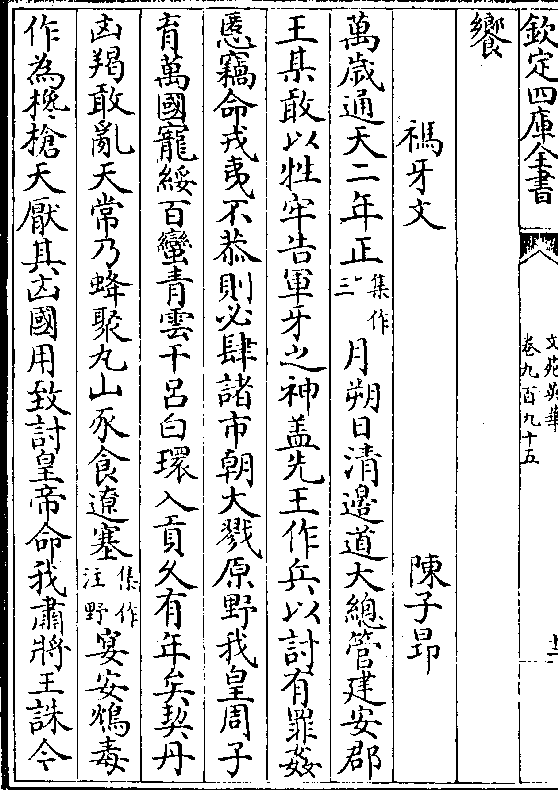 欽定四庫全書
文苑英華
卷九百九十五
饗
禡牙文
陳子昻
萬歲通天二年正集作三月朔日清邊道大總管建安郡
王某敢以牲牢告軍牙之神盖先王作兵以討有罪姦
慝竊命戎夷不恭則必肆諸市朝大戮原野我皇周子
育萬國寵綏百蠻青雲干呂白環入貢久有年矣契丹
凶羯敢亂天常乃蜂聚丸山豕食遼塞集作汪野宴安鴆毒
作為欃槍天厭其凶國用致討皇帝命我肅將王誅今